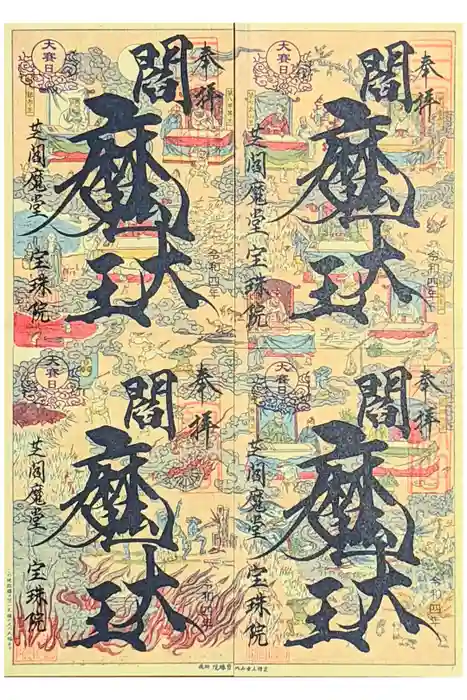 奉拝
大賽日
閻魔大王
令和四年
芝閻魔堂 宝珠院
奉拝
大賽日
閻魔大王
令和四年
芝閻魔堂 宝珠院
奉拝
大賽日
閻魔大王
令和四年
芝閻魔堂 宝珠院
奉拝
大賽日
閻魔大王
令和四年
芝閻魔堂 宝珠院